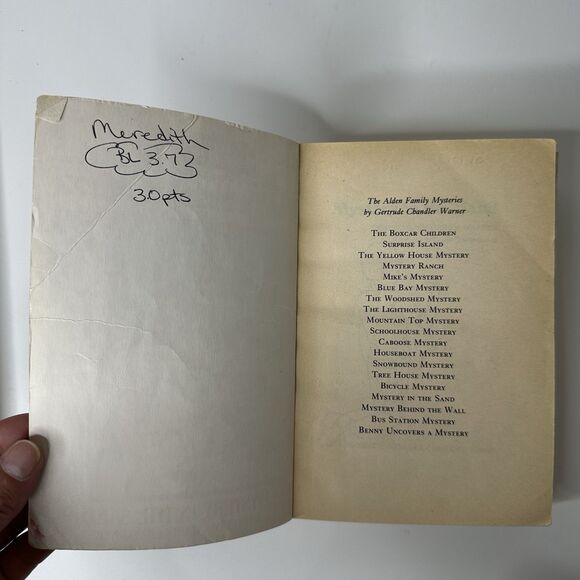 Meredith
BL 3.7
3.0pts
The Alden Family Mysteries
by Gertrude Chandler Warner
THE BOXCAR CHILDREN
SURPRISE ISLAND
THE YELLOW HOUSE MYSTERY
MYSTERY RANCH
MIKE'S MYSTERY
BLUE BAY MYSTERY
THE WOODSHED MYSTERY
THE LIGHTHOUSE MYSTERY
MOUNTAIN TOP MYSTERY
SCHOOLHOUSE MYSTERY
CABOOSE MYSTERY
HOUSEBOAT MYSTERY
SNOWBOUND MYSTERY
TREE HOUSE MYSTERY
BICYCLE MYSTERY
MYSTERY IN THE SAND
MYSTERY BEHIND THE WALL
BUS STATION MYSTERY
BENNY UNCOVERS A MYSTERY